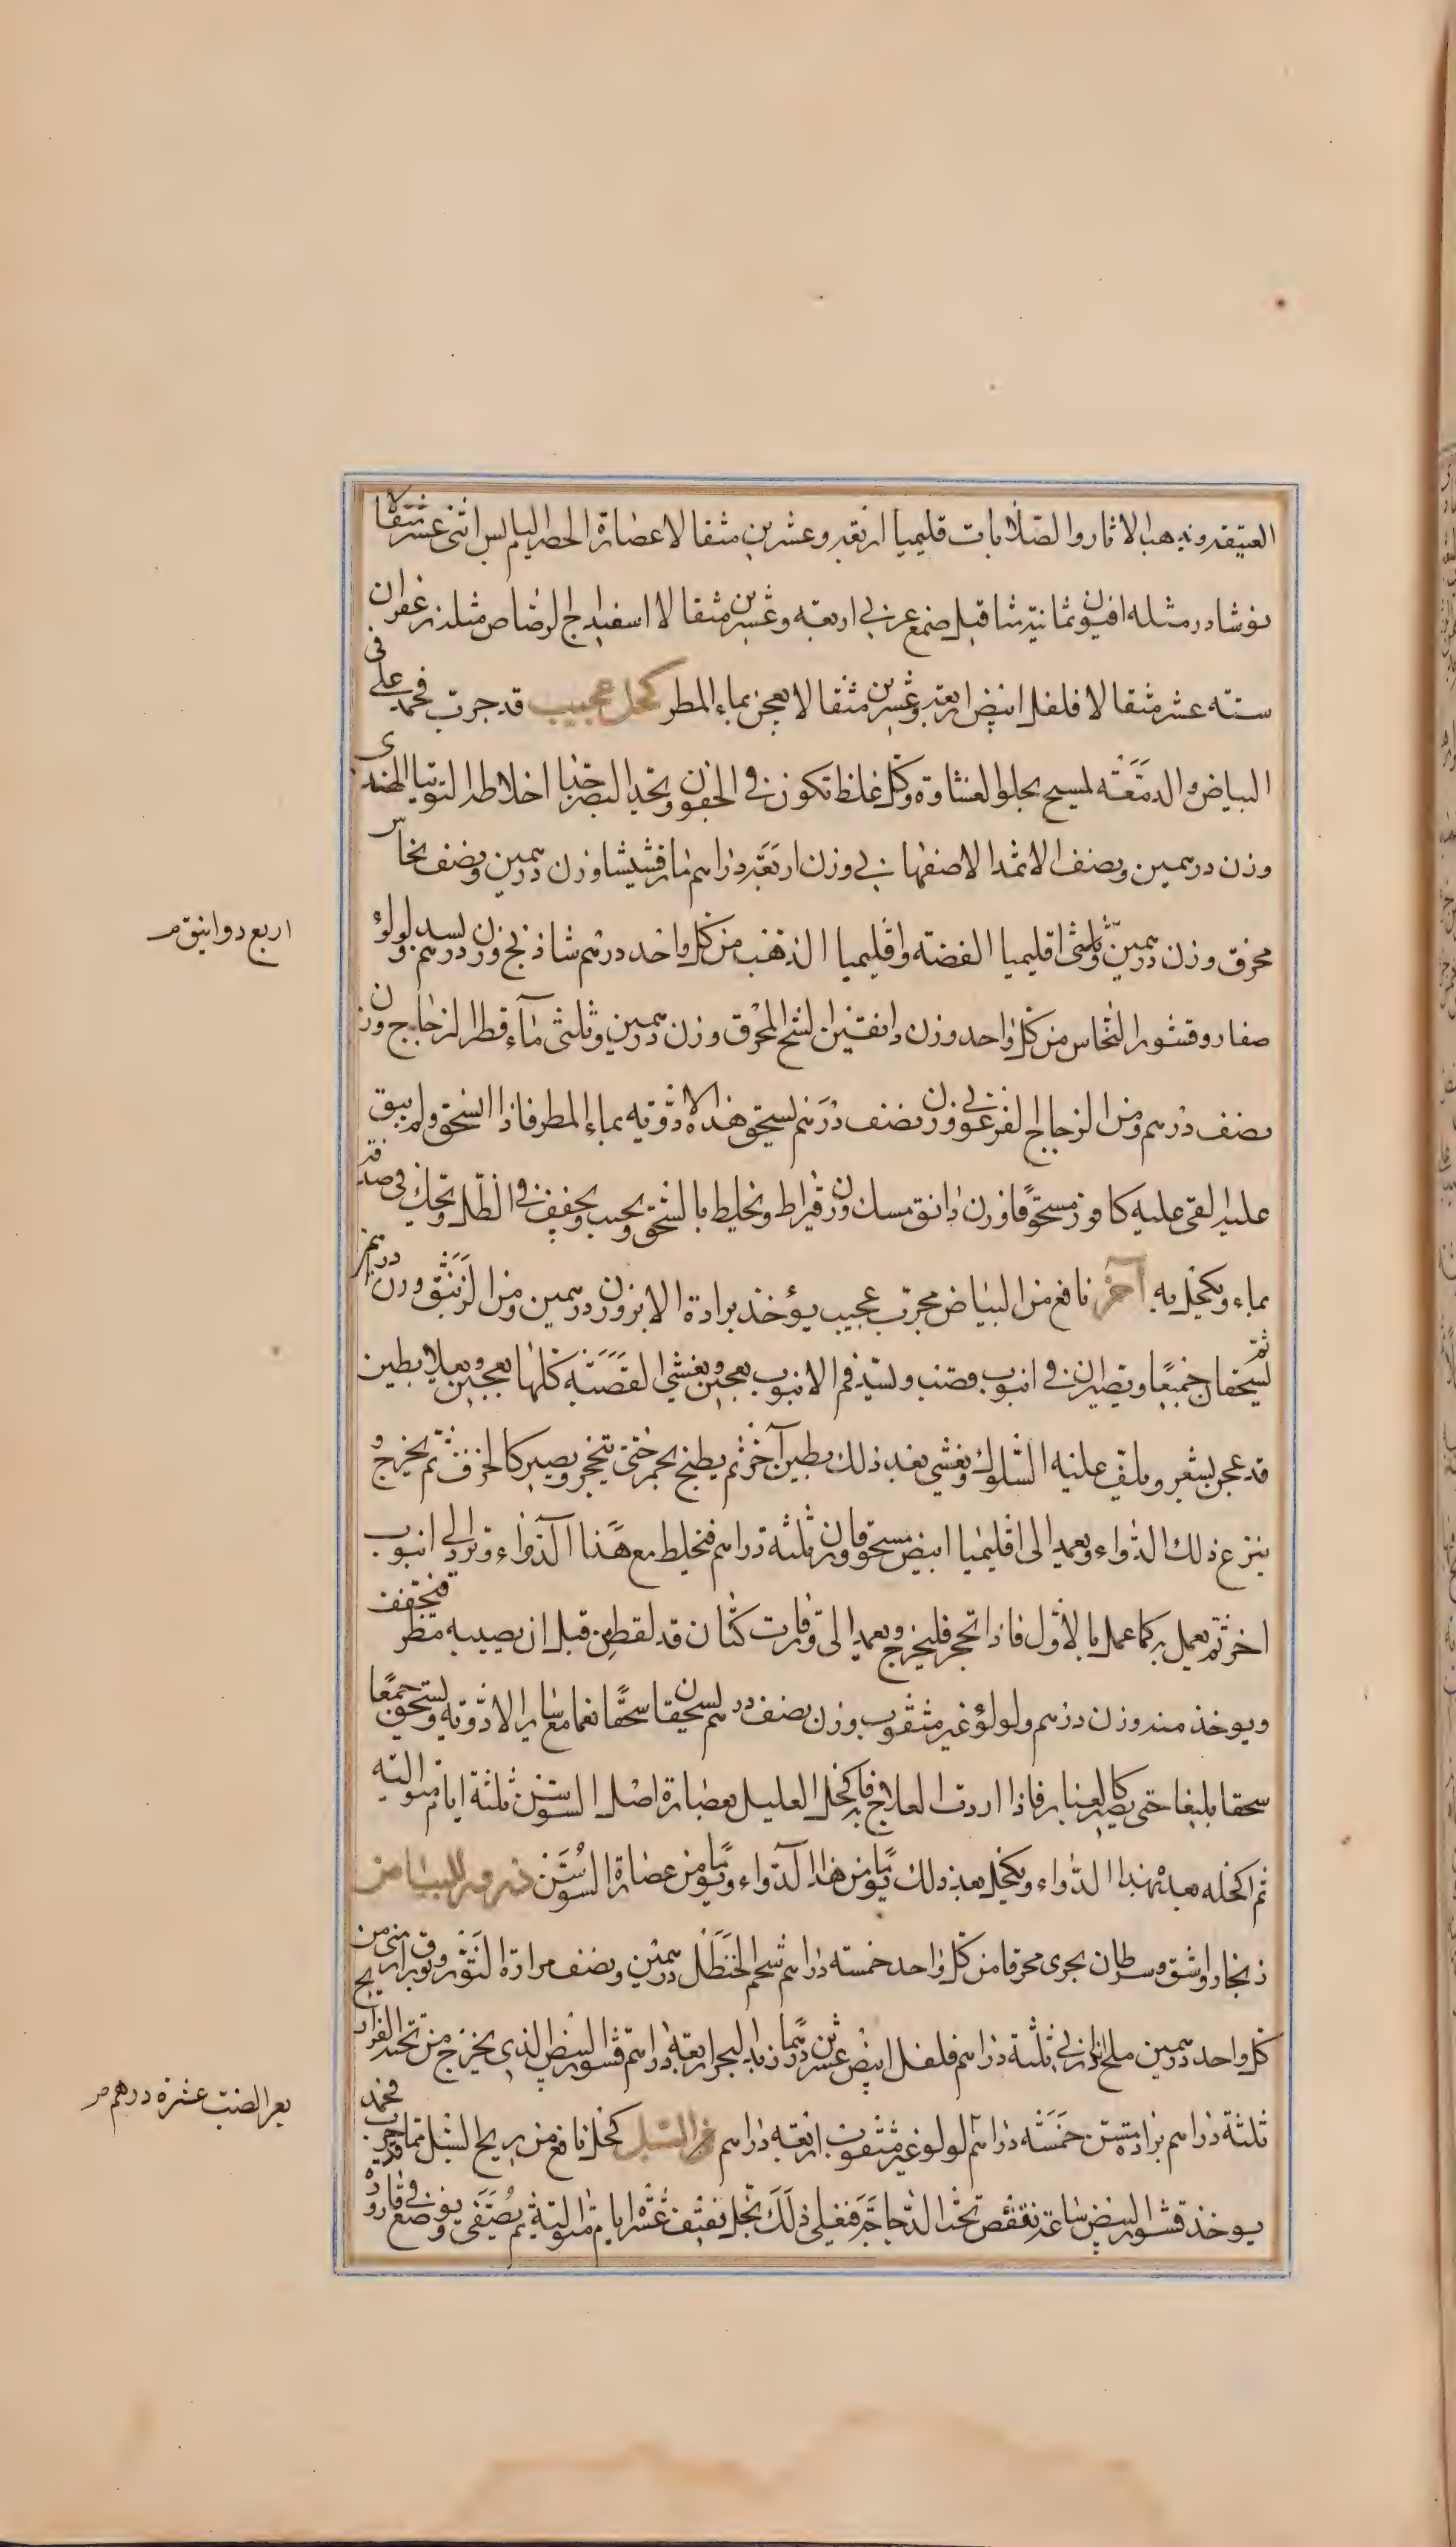 العتيقة ويذهب الاثار والصلابات قليميا اربعة وعشرين مثقالا عصارة الحصرم اليابس اثنى عشر مثقالا
نوشادر مثله افيون ثمانية مثاقيل صمغ عربي اربعة وعشرين مثقالا اسفيداج الرصاص مثله زعفران
ستة عشر مثقالا فلفل ابيض اربعة وعشرين مثقالا يعجن بماء المطر كحل عجيب قد جرب فحمد على في
البياض والدمعة لمسيح يجلو الغشاوة وكل غلظ تكون في الجفون ويحد البصر جدا اخلاطه التوتيا الهندى
وزن درهمين ونصف الاثمد الاصفهاني وزن اربعة دراهم مارقشيشا وزن درهمين ونصف نحاس
محرق وزن درهمين وثلثى اقليميا الفضة واقليميا الذهب من كل واحد درهم شاذنج وزن درهم بسد ولولؤ
صغار وقشور النحاس من كل واحد وزن دانقين الشح المحرق وزن درهمين وثلثى ماء قطر الزجاج وزن
نصف درهم ومن الزجاج الفرعوني وزن نصف درهم يسحق هذه الادوية بماء المطر فاذا انسحق ولم يبق
عليه القى عليه كافور مسحوقا وزن دانق مسك وزن قيراط ويخلط بالسحق ويحبب ويجفف في الظل ويحك في صدفة
بماء ويكحل به آخر نافع من البياض مجرب عجيب يؤخذ برادة الابر وزن درهمين ومن الزئبق وزن درهم
ثم يسحقان جميعا ويصيران في انبوب قصب ويسد فم الانبوب بعجين ويغشى القصبة كلها بعجين ويعلا بطين
قد عجن بشعر ويلف عليه السلوك ويغشي بعد ذلك بطين آخر ثم يطبخ بجمر حتى يتحجر ويصير كالخزف ثم يخرج و
ينزع ذلك الدواء ويعمد الى اقليميا ابيض مسحوقا وزن ثلثة دراهم فيخلط مع هذا الدواء ويرد الى انبوب
اخر ثم يعمل به كما عمل بالاول فاذا تحجر فليخرج ويعمد الى قارت كتان قد لقط من قبل ان يصيبه مطر فيجفف
ويوخذ منه وزن درهم ولولؤ غير مثقوب وزن نصف درهم يسحقان سحقا نعما مع ساير الادوية وتسحق جمعا
سحقا بليغا حتى يصير كالغبار فاذا اردت العلاج به فاكحل العليل بعصارة اصل السوسن ثلثة ايام متوالية
ثم اكحله بعد بهذا الدواء ويكحل بعد ذلك يوما من هذا الدواء ويوما من عصارة السوسن ذرور للبياض
زنجار واشق وسرطان بحرى محرقا من كل واحد خمسة دراهم شحم الحنظل درهمين ونصف مرارة الثور وبورق ارمنى من
كل واحد درهمين ملح اندراني ثلثة دراهم فلفل ابيض عشرين درهما زبد البحر اربعة دراهم قشور البيض الذي يخرج من تحته الفراريج
ثلثة دراهم برادة مسن خمسة دراهم لولو غير مثقوب اربعة دراهم السبل كحل نافع من ريح السبل مما قد جرب فحمد
يوخذ قشور البيض ساعة تنقفص تحت الدجاجة فيغلى ذلك بخل ثقيف عشرة ايام متوالية ثم يصفى ويوضع في قارورة
اربع دوانيق م
بعر الضب عشرة درهم م